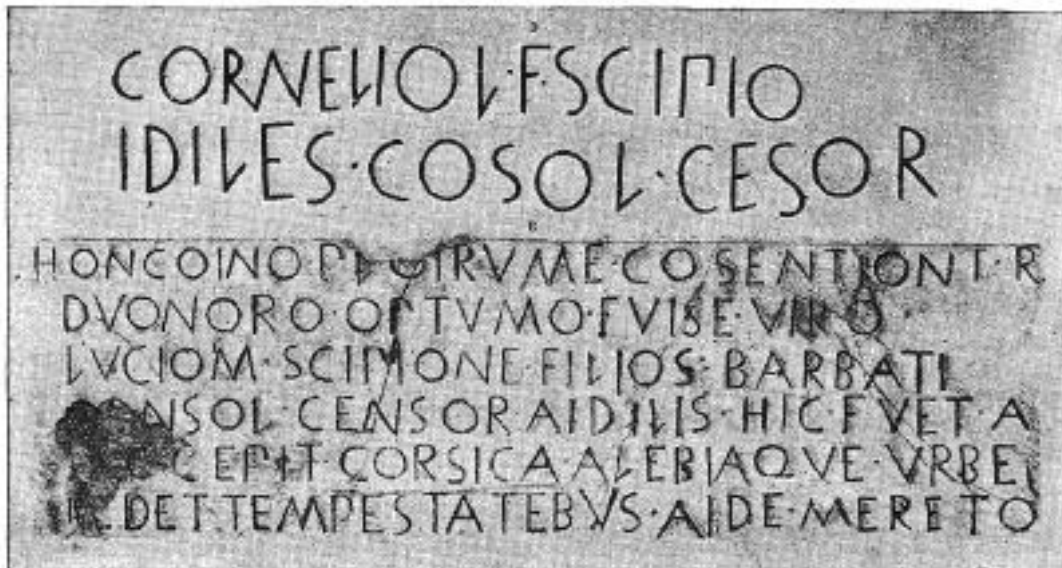 CORNELIO L·F·SCIPIO
IDILES·COSOL·CESOR
HONC OINO PLOIRVME·COSENTIONT·R
DVONORO·OPTVMO·FVISE·VIRO
LVCIOM·SCIPIONE·FILIOS·BARBATI
NSOL·CENSOR AIDILIS·HIC·FVET·A
C CEPIT·CORSICA·ALERIAQVE·VRBE
DET TEMPESTATEBVS·AIDE·MERETO